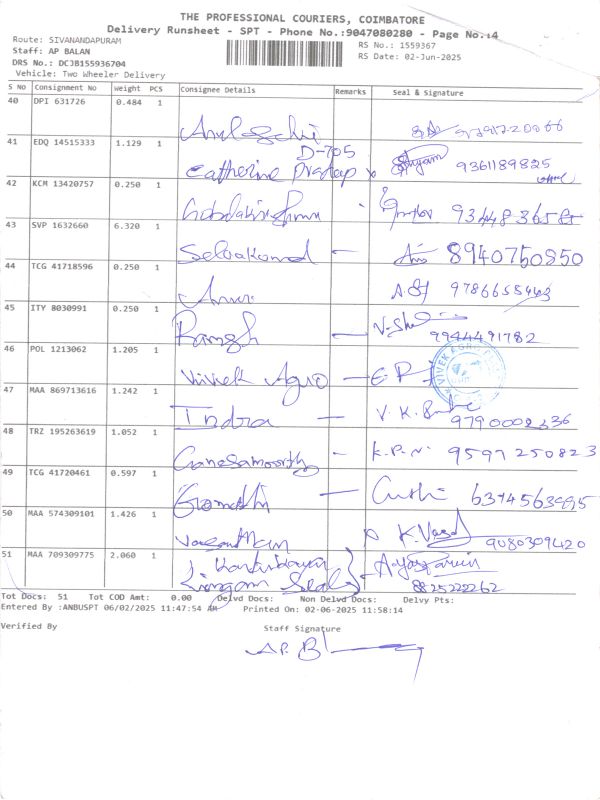 THE PROFESSIONAL COURIERS, COIMBATORE
Delivery Runsheet - SPT - Phone No.:9047080280 - Page No.:4
Route: SIVANANDAPURAM
Staff: AP BALAN
RS No.: 1559367
DRS No.: DCJB155936704
RS Date: 02-Jun-2025
Vehicle: Two Wheeler Delivery
S No Consignment No Weight PCS Consignee Details Remarks Seal & Signature
40 DPI 631726 0.484 1
41 EDQ 14515333 1.129 1 D-705
Catherine Pradeep 9361189825
42 KCM 13420757 0.250 1
43 SVP 1632660 6.320 1 8940750850
44 TCG 41718596 0.250 1
45 ITY 8030991 0.250 1 Ramesh 9944491782
46 POL 1213062 1.205 1 Vivek Agro
47 MAA 869713616 1.242 1 Indra V.K.
48 TRZ 195263619 1.052 1 Ganesamoorthy K.P.N. 9597250823
49 TCG 41720461 0.597 1 Gomathi 6374563995
50 MAA 574309101 1.426 1 9080309420
51 MAA 709309775 2.060 1
8825222262
Tot Docs: 51 Tot COD Amt: 0.00 Delvd Docs: Non Delvd Docs: Delvy Pts:
Entered By :ANBUSPT 06/02/2025 11:47:54 AM Printed On: 02-06-2025 11:58:14
Verified By Staff Signature
A.P. B